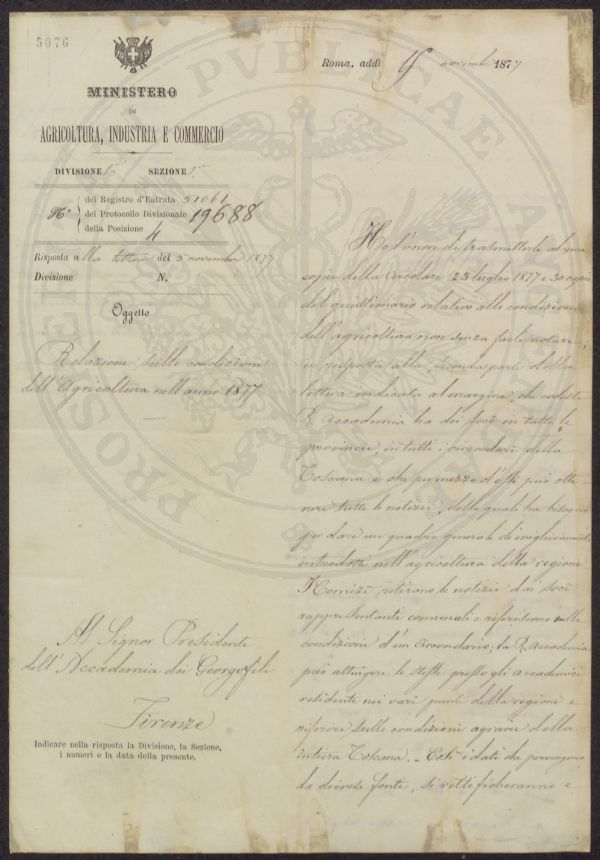 5076
Roma, addì 9 novembre 1877
MINISTERO
DI
AGRICOLTURA, INDUSTRIA E COMMERCIO
DIVISIONE SEZIONE
N.° del Registro d'Entrata 51061
del Protocollo Divisionale 19688
della Posizione 4
Risposta alla lettera del 5 novembre 1877
Divisione N.
Oggetto
Relazioni sulle condizioni
dell'Agricoltura nell'anno 1877
Al Signor Presidente
dell'Accademia dei Georgofili
Firenze
Indicare nella risposta la Divisione, la Sezione,
i numeri e la data della presente.
Ho l'onore di trasmetterle alcune
copie della Circolare 23 luglio 1877 e 30 copie
del questionario relativo alle condizioni
dell'agricoltura non senza farle notare,
in risposta alla seconda parte della
lettera indicata al margine, che codesta
R. Accademia ha dei soci in tutte le
provincie, in tutti i circondari della
Toscana e che per mezzo d'essi può otte
nere tutte le notizie, delle quali ha bisogno
per dare un quadro generale di miglioramenti
introdotti nell'agricoltura della regione.
I Comizi ritirano le notizie dai soci
rappresentanti comunali e riferiscono sulle
condizioni d'un Circondario, la R. Accademia
può attingere le stesse presso gli accademici
residenti nei vari punti della regione e
riferire sulle condizioni agrarie della
intiera Toscana. Così i dati che pervengono
da diverse fonti, si rettificheranno e
PROSPERITATI PVBLICAE AVGENDAE